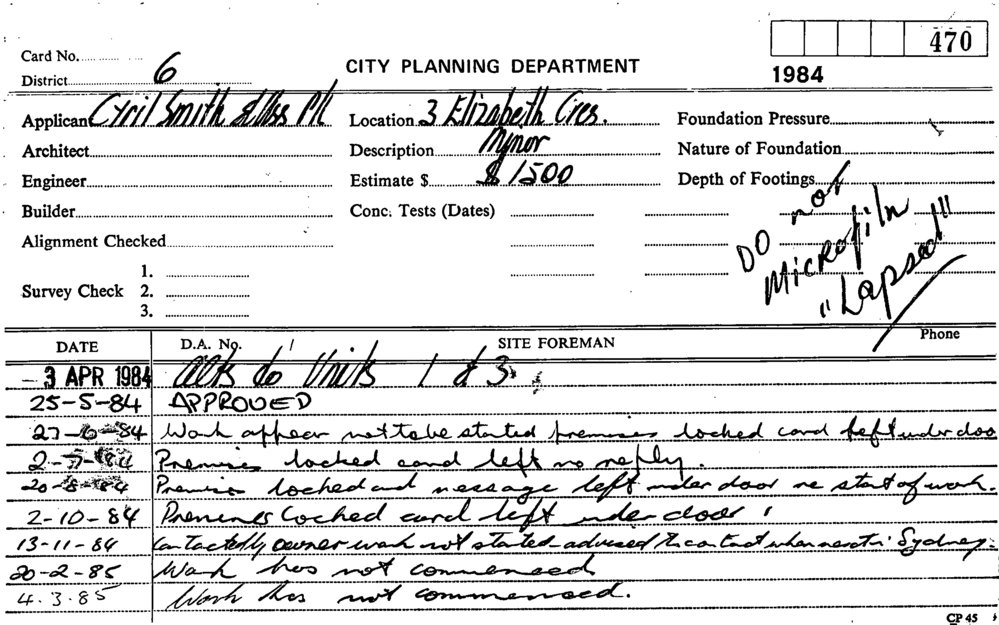 470
Card No.
CITY PLANNING DEPARTMENT
1984
District 6
Applicant Cyril Smith & Ass P/L Location 3 Elizabeth Cres. Foundation Pressure
Architect Description Mynor Nature of Foundation
Engineer Estimate $ $1500 Depth of Footings
Builder Conc. Tests (Dates)
Alignment Checked
DO not
Microfilm
"Lapsed"
1.
Survey Check 2.
3.
DATE D.A. No. SITE FOREMAN Phone
- 3 APR 1984 alts to Units 1 & 3
25-5-84 APPROVED
27-6-84 Work appear not to be started premises locked card left under doo
2-7-84 Premises locked card left no reply.
20-8-84 Premises locked and message left under door re start of work.
2-10-84 Premines locked card left under door
13-11-84 Contacted by owner work not started advised to contact when next in Sydney.
20-2-85 Work has not commenced
4.3.85 Work has not commenced.
CP 45